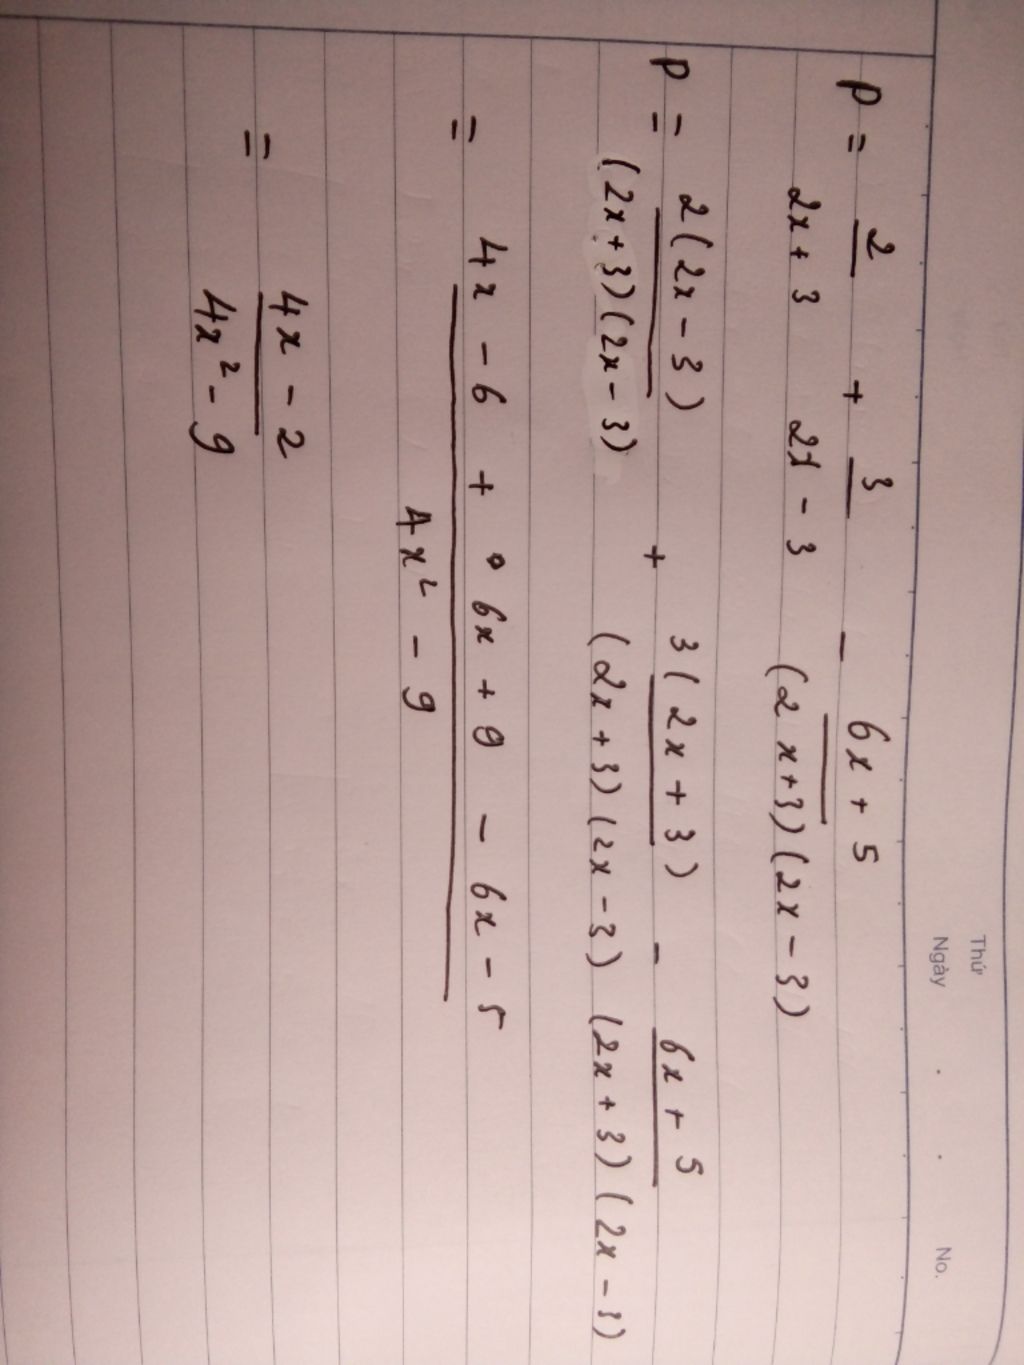 Thứ
Ngày . . No.
P = 2/(2x + 3) + 3/(2x - 3) - (6x + 5)/((2x+3)(2x - 3))
P = 2(2x - 3)/((2x + 3)(2x - 3)) + 3(2x + 3)/((2x + 3)(2x - 3)) - (6x + 5)/((2x + 3)(2x - 3))
= (4x - 6 + 6x + 9 - 6x - 5)/(4x² - 9)
= (4x - 2)/(4x² - 9)